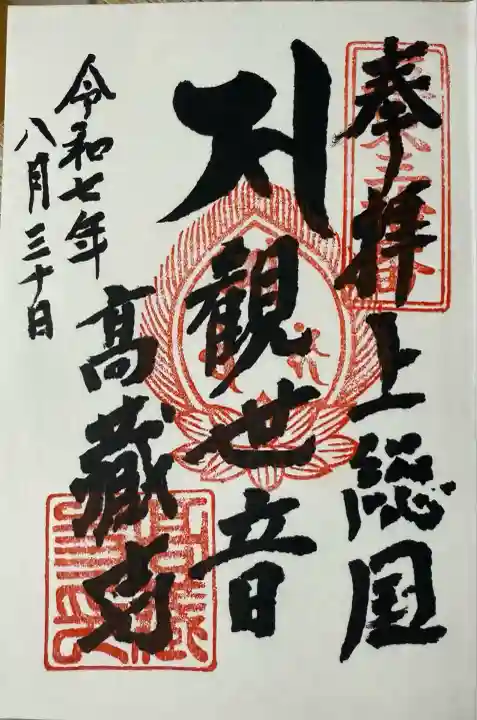 奉拝 上総国
観世音
髙藏寺
令和七年
八月三十日